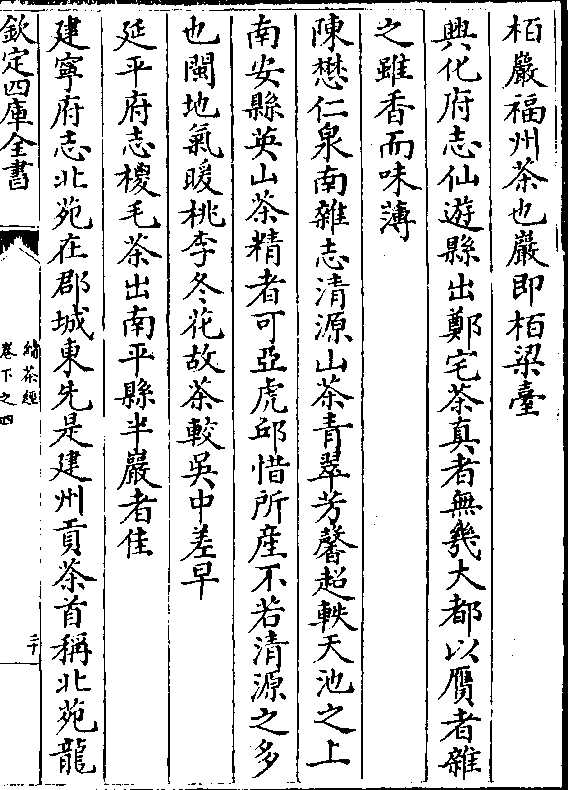 栢巖福州茶也巖即栢梁臺
興化府志仙遊縣出鄭宅茶真者無幾大都以贋者雜
之雖香而味薄
陳懋仁泉南雜志清源山茶青翠芳馨超軼天池之上
南安縣英山茶精者可亞虎邱惜所産不若清源之多
也閩地氣暖桃李冬花故茶較吳中差早
延平府志㮨毛茶出南平縣半巖者佳
建寧府志北苑在郡城東先是建州貢茶首稱北苑龍
欽定四庫全書
續茶經
卷下之四
二十